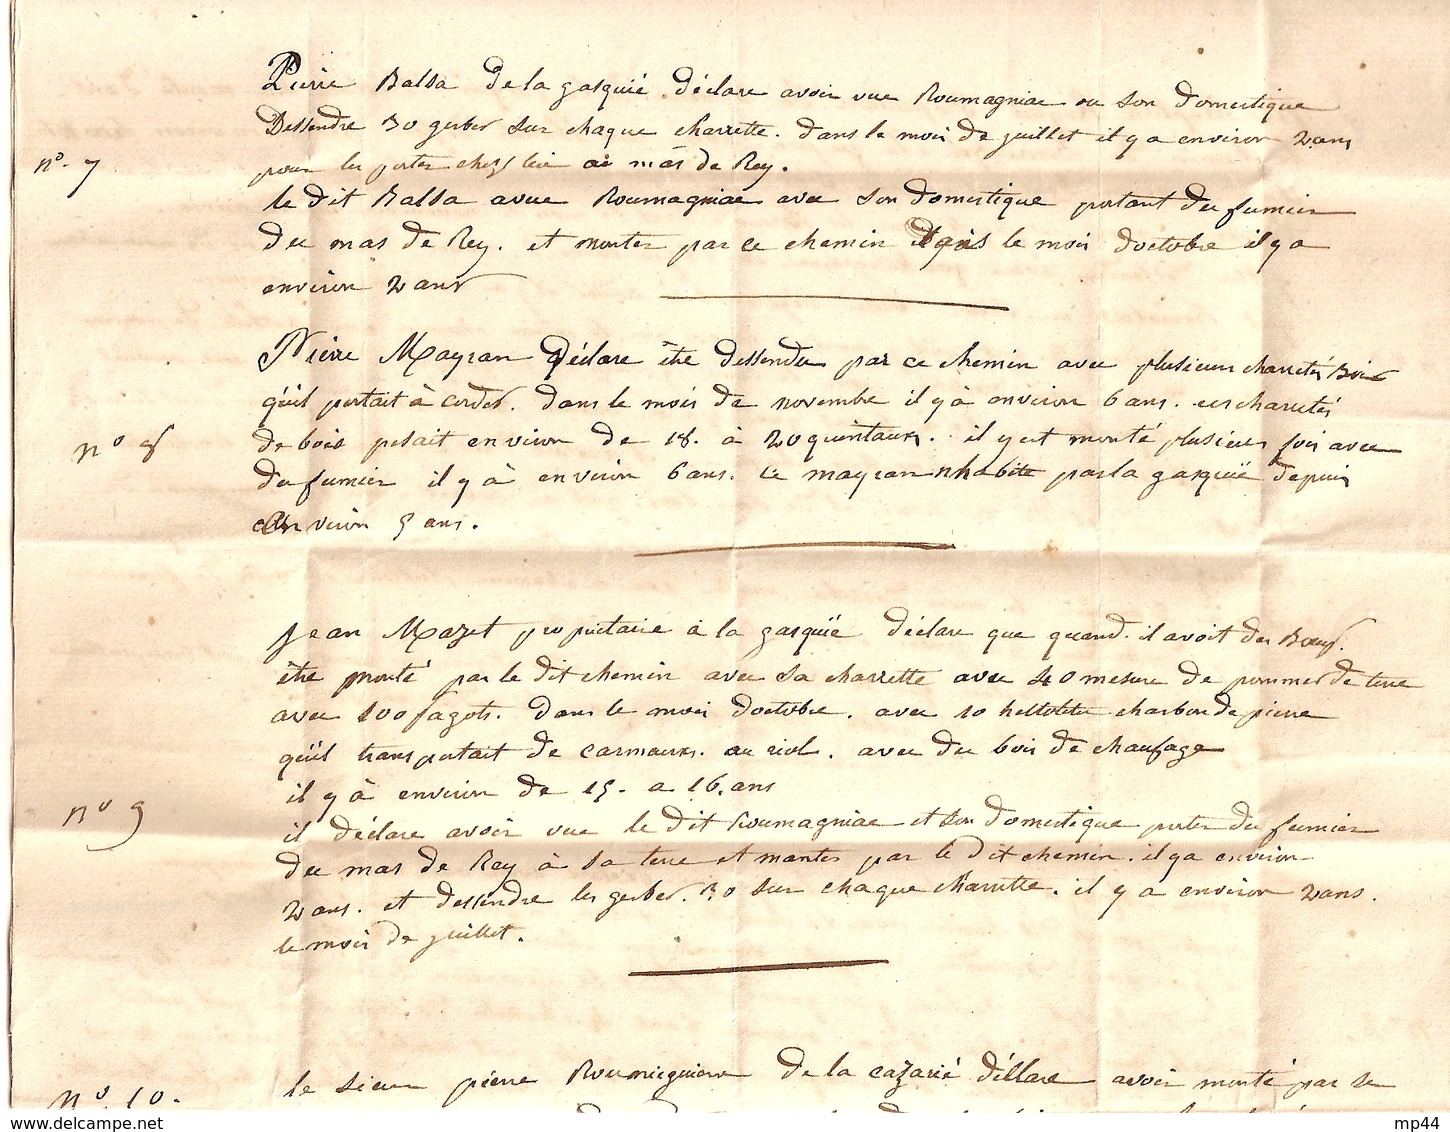 Pierre Balsa De la gasquié. déclare avoir vue Roumagniac ou son domestique
Dessendre 30 gerber sur chaque charrette. dans le mois de juillet il y a environ 2 ans
n°. 7
pour les porter chez lui au mas de Rey.
le dit Balsa avue Roumagniac avec son domestique portant du fumier
du mas de Rey. et monter par ce chemin dans le mois doctobre il y a
environ 2 ans
Pierre Mayran déclare être dessendu par ce chemin avec plusieurs charretés Bois
qu'il portait à cordes. dans le mois de novembre il y à environ 6 ans. ces charretés
n° 8
de bois pesait environ de 18. à 20 quintaux. il y est monté plusieurs fois avec
du fumier il y à environ 6 ans. le mayran nhabite pas la gasquië depuis
environ 5 ans.
Jean Mazet propriétaire à la gasquïe déclare que quand. il avoit des Bœufs.
être monté par le dit chemin avec sa charrette avec 40 mesure de pommes de terre
avec 100 fagots. dans le mois doctobre. avec 10 hectolitre charbon de pierre
qu'il transportait de carmaux. au riol. avec du bois de chaufage
il y à environ de 15. a 16. ans
n° 9
il déclare avoir vue le dit Roumagniac et son domestique porter du fumier
du mas de Rey à sa terre et monter par le dit chemin. il y a environ
2 ans. et dessendre les gerber. 30 sur chaque charrette. il y a environ 2 ans.
le mois de juillet.
n°. 10.
le sieur pierre de la cazarié déllare avoir monté par le
www.delcampe.net
mp44